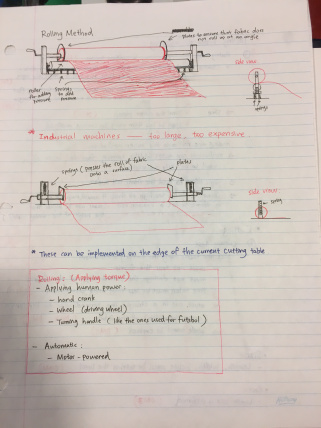 Rolling Method
Plates to ensure that fabric does
not roll at an angle
side view
roller
for adding
tension
springs
to add
tension
springs
* Industrial machines — too large, too expensive
springs (presses the roll of fabric
onto a surface)
plates
side view:
spring
* These can be implemented on the edge of the current cutting table
Rolling: (Applying torque)
- Applying human power:
- hand crank
- Wheel (driving wheel)
- Turning handle (like the ones used for futsbol)
- Automatic:
- Motor-powered